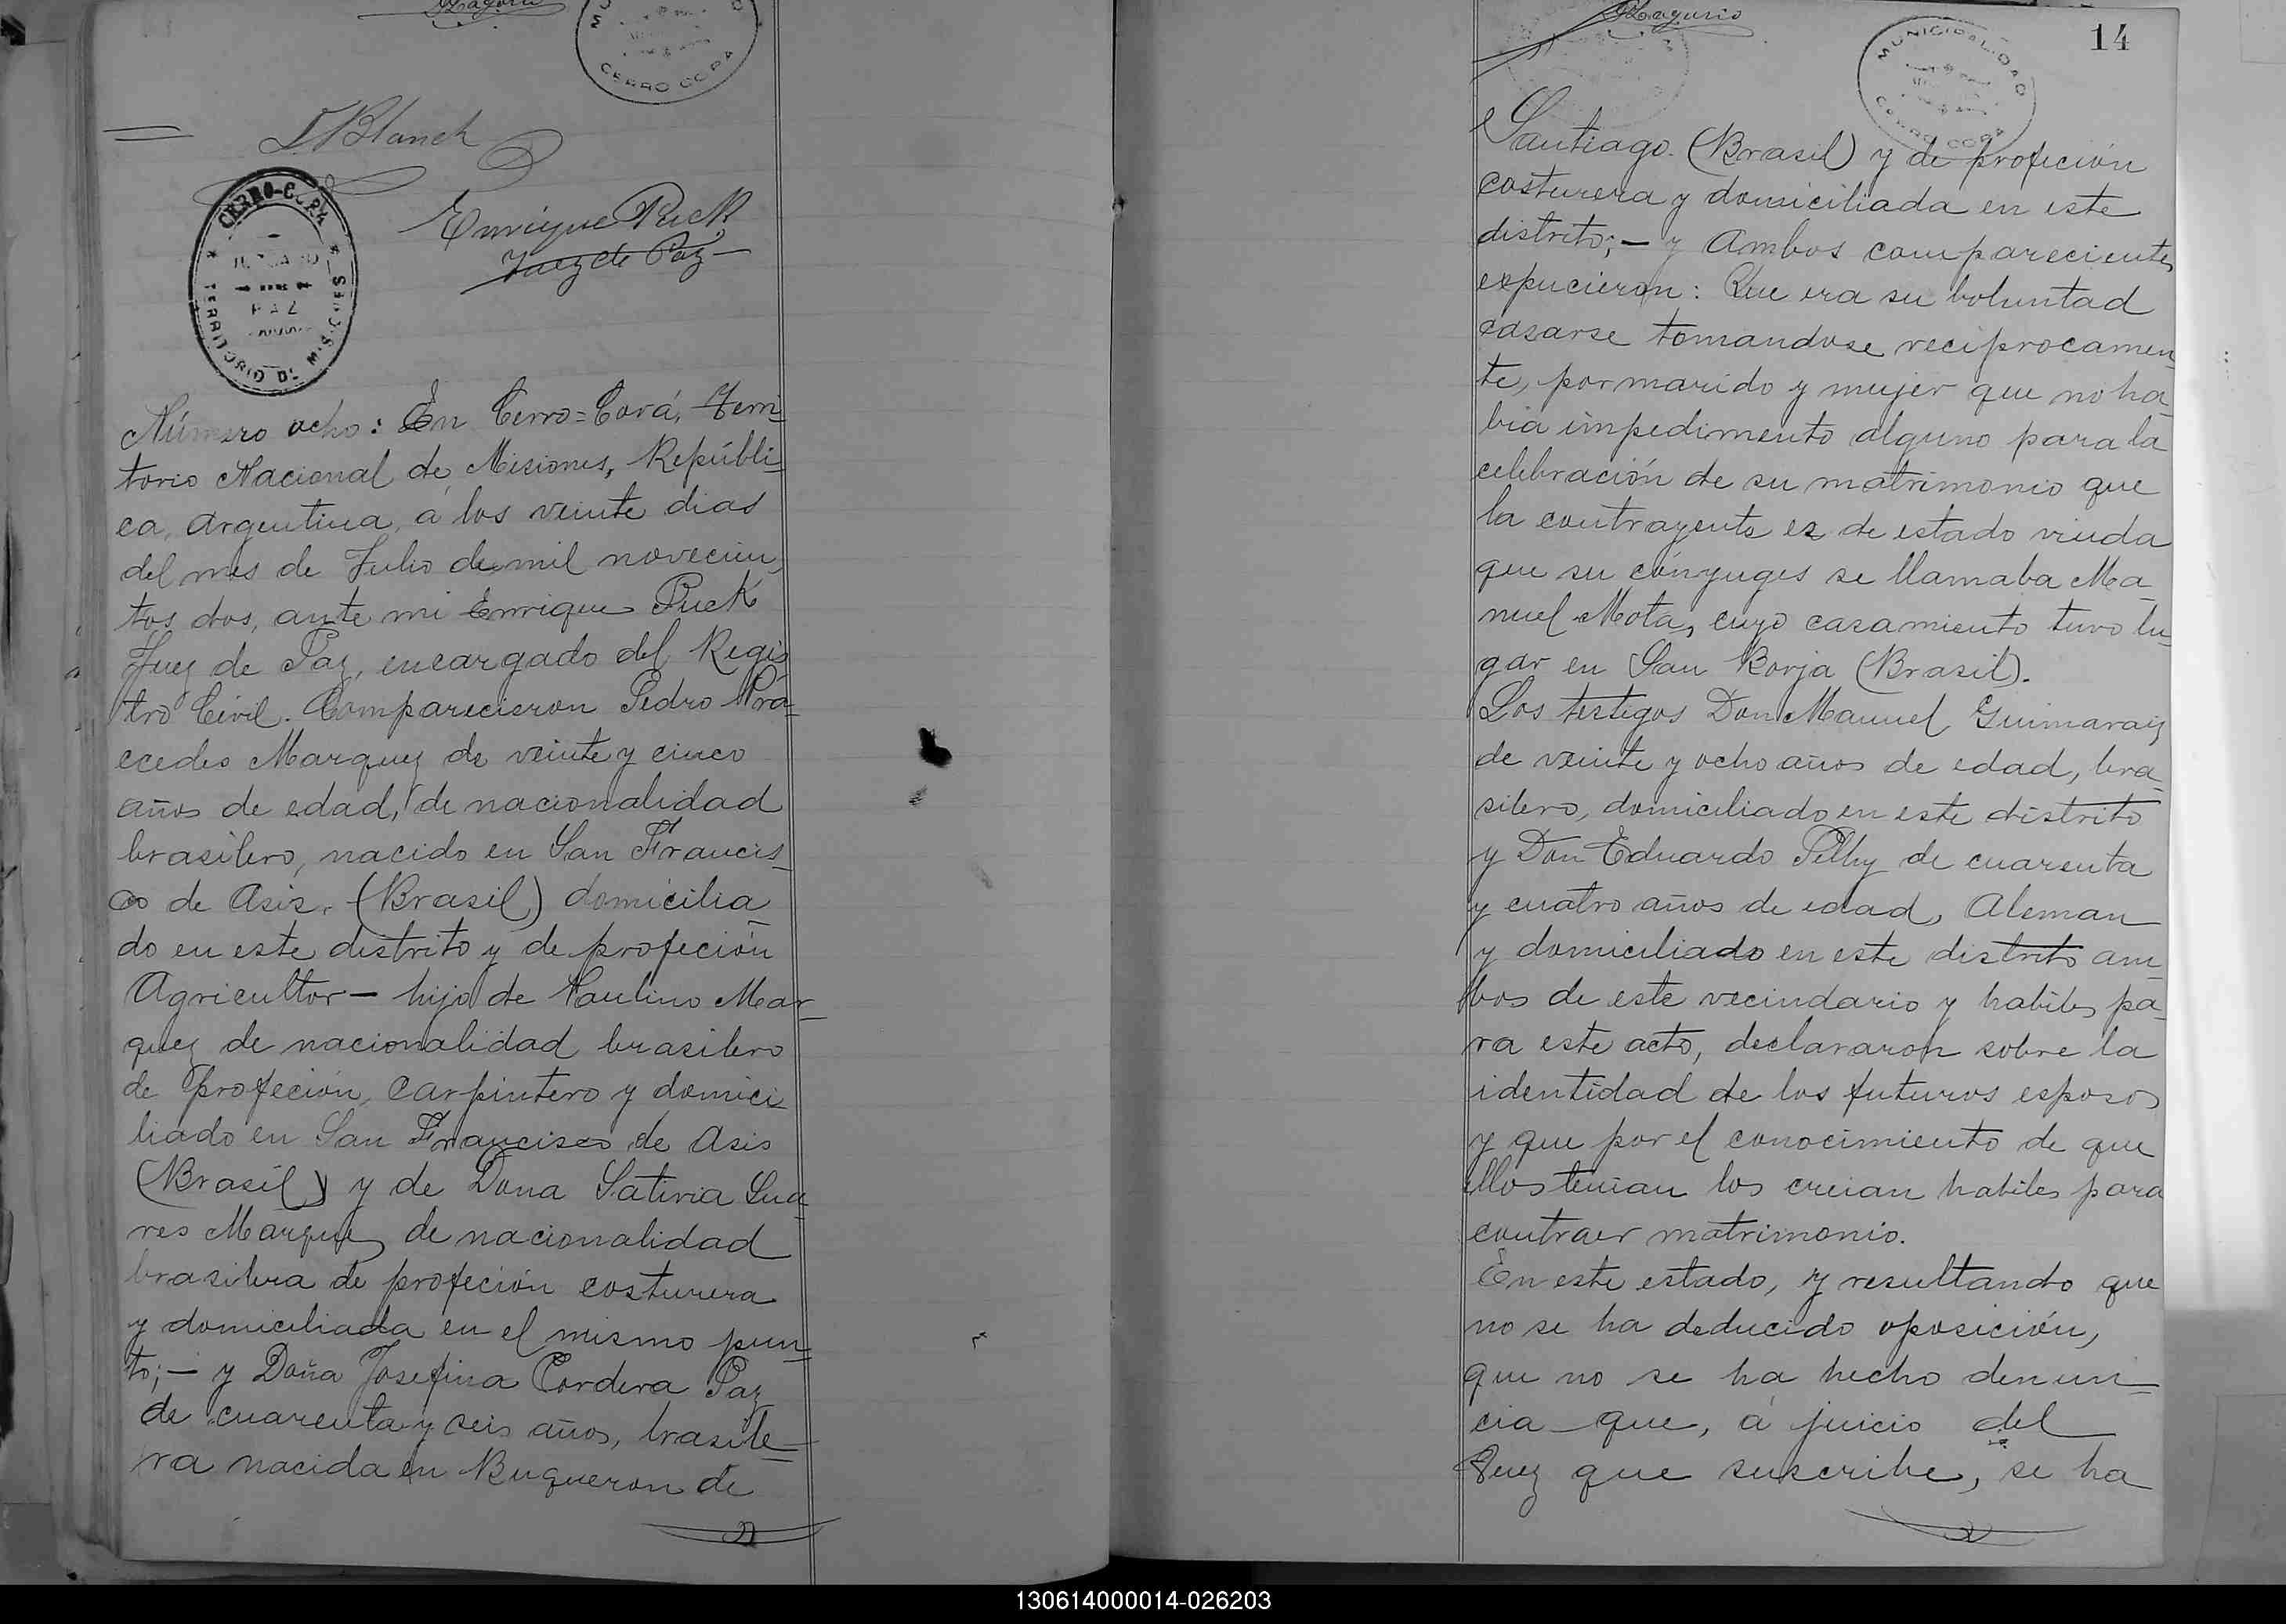 L Blanch
CERRO-CORÁ
JUZGADO
DE
PAZ
TERRITORIO DE MISIONES
Enrique Puck
Juez de Paz
CERRO CORA
Número ocho: En Cerro=Corá, Terri
torio Nacional de Misiones, Repúbli
ca, Argentina, á los veinte dias
del mes de Julio de mil novecien
tos dos, ante mi Enrique Puck
Juez de Paz, encargado del Regis
tro Civil. Comparecieron Pedro Pra-
cedes Marquez de veinte y cinco
años de edad, de nacionalidad
brasilero, nacido en San Francis
co de Asis. (Brasil) domicilia
do en este distrito y de profeción
Agricultor — hijo de Paulino Mar-
quez de nacionalidad brasilero
de profeción, carpintero y domici
liado en San Francisco de Asis
(Brasil) y de Dona Sativia Sua
res Marquez de nacionalidad
brasilera de profeción costurera
y domiciliada en el mismo pun
to; — y Doña Josefina Cordera Paz
de cuarenta y seis años, brasile-
ra nacida en Buqueron de
14
MUNICIPALIDAD
CERRO CORA
Santiago. (Brasil) y de profeción
costurera y domiciliada en este
distrito; — y Ambos comparecientes
expucieron: Que era su boluntad
casarse tomandose reciprocamen
te, por marido y mujer que no ha-
bia impedimento alguno para la
celebración de su matrimonio que
la contrayente es de estado viuda
que su cónyuges se llamaba Ma-
nuel Mota, cuyo casamiento tuvo lu-
gar en San Borja (Brasil).
Los testigos Don Manuel Guimaraiz
de veinte y ocho años de edad, bra-
silero, domiciliado en este distrito
y Don Eduardo Pelhy de cuarenta
y cuatro años de edad, Aleman
y domiciliado en este distrito am-
bos de este vecindario y habiles pa-
ra este acto, declararon sobre la
identidad de los futuros esposos
y que por el conocimiento de que
ellos tenian los creian habiles para
contraer matrimonio.
En este estado, y resultando que
no se ha deducido oposición,
que no se ha hecho denun-
cia que, á juicio del
Juez que suscribe, se ha
130614000014-026203